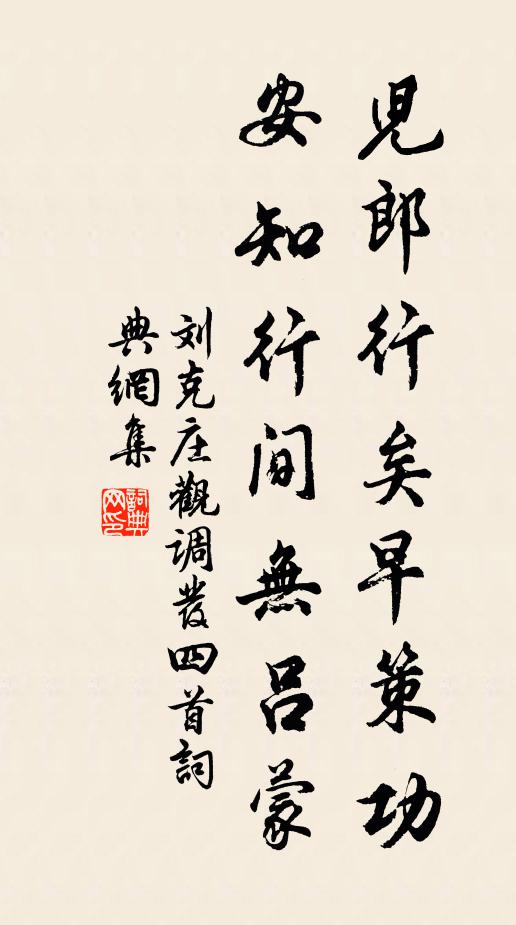 兒郎行矣早策功
安知行間無呂蒙
刘克庄觀调發四首詞
典網集
詞典網印